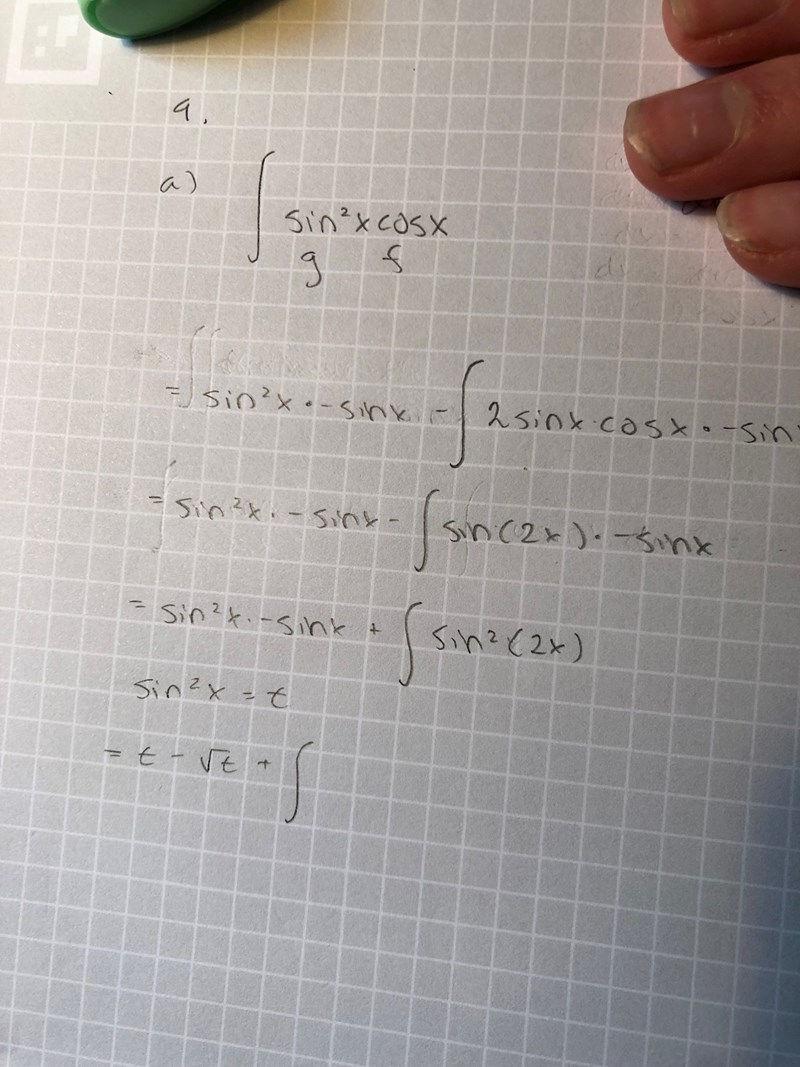 9.
a) ∫ sin²x cosx
g f
= sin²x · -sinx - ∫ 2 sinx · cosx · -sin
= sin²x · -sinx - ∫ sin(2x) · -sinx
= sin²x · -sinx + ∫ sin²(2x)
sin²x = t
= t - √t + ∫